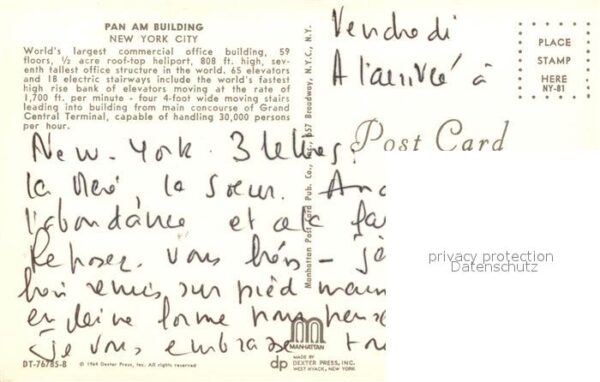 PAN AM BUILDING
NEW YORK CITY
World's largest commercial office building, 59
floors, ½ acre roof-top heliport, 808 ft. high, sev-
enth tallest office structure in the world. 65 elevators
and 18 electric stairways include the world's fastest
high rise bank of elevators moving at the rate of
1,700 ft. per minute - four 4-foot wide moving stairs
leading into building from main concourse of Grand
Central Terminal, capable of handling 30,000 persons
per hour.
Vendredi
A l'arrivée à
New-York. 3 lettres.
la Mere la Soeur.
l'abondance et cela
Reposez vous bien -
bien remis sur pied
en pleine forme
je vous embrasse
PLACE
STAMP
HERE
NY-81
Post Card
Manhattan Post Card Pub. Co., Inc., 657 Broadway, N.Y.C., N.Y.
privacy protection
Datenschutz
MANHATTAN
dp
MADE BY
DEXTER PRESS, INC.
WEST NYACK, NEW YORK
DT-76785-B
© 1964 Dexter Press, Inc. All rights reserved